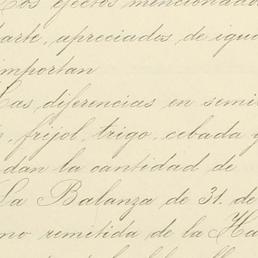 Los efectos mencionado
arte, apreciados de igua
importan
Las diferencias en semi
frijol, trigo, cebada y
dan la cantidad de
La Balanza de 31. de
mo remitida de la Ha